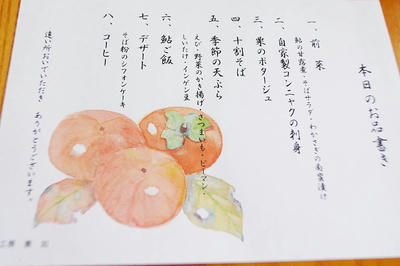 本日のお品書き
一、前菜
鮎の甘露煮・そばサラダ・わかさぎの南蛮漬け
二、自家製コンニャクの刺身
三、栗のポタージュ
四、十割そば
五、季節の天ぷら
えび・野菜のかき揚げ・さつまいも・ピーマン・
しいたけ・インゲン豆
六、鮎ご飯
七、デザート
そば粉のシフォンケーキ
八、コーヒー
遠い所おいでいただき
ありがとうございます。